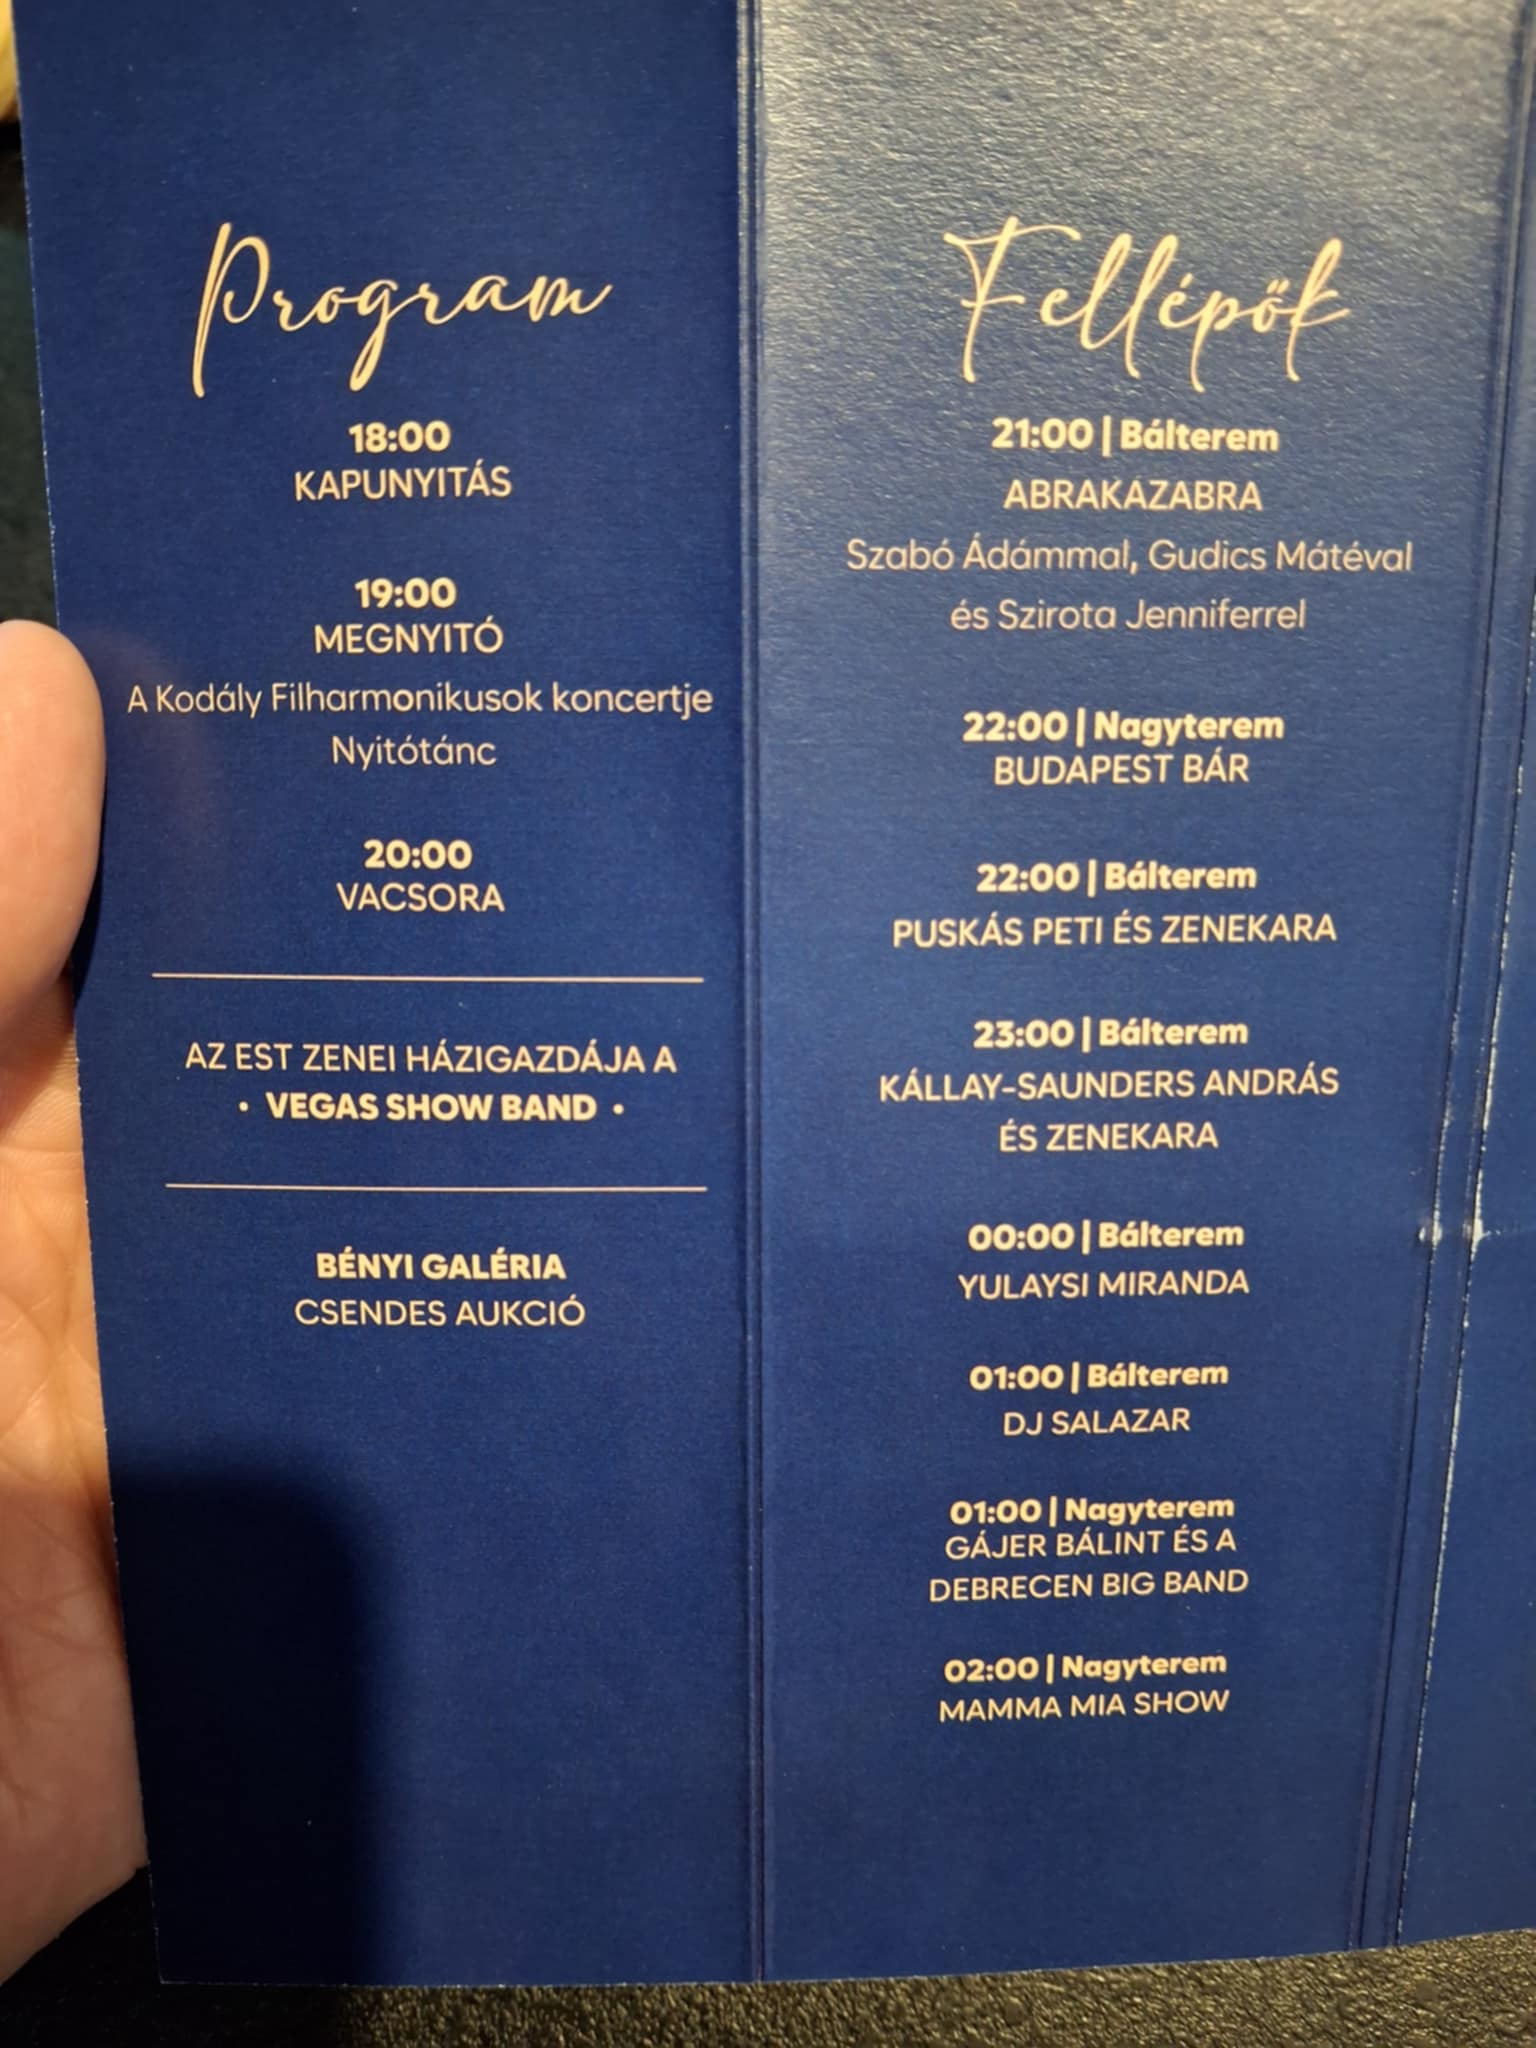 Program
18:00
KAPUNYITÁS
19:00
MEGNYITÓ
A Kodály Filharmonikusok koncertje
Nyitótánc
20:00
VACSORA
AZ EST ZENEI HÁZIGAZDÁJA A
• VEGAS SHOW BAND •
BÉNYI GALÉRIA
CSENDES AUKCIÓ
Fellépők
21:00 | Bálterem
ABRAKAZABRA
Szabó Ádámmal, Gudics Mátéval
és Szirota Jenniferrel
22:00 | Nagyterem
BUDAPEST BÁR
22:00 | Bálterem
PUSKÁS PETI ÉS ZENEKARA
23:00 | Bálterem
KÁLLAY-SAUNDERS ANDRÁS
ÉS ZENEKARA
00:00 | Bálterem
YULAYSI MIRANDA
01:00 | Bálterem
DJ SALAZAR
01:00 | Nagyterem
GÁJER BÁLINT ÉS A
DEBRECEN BIG BAND
02:00 | Nagyterem
MAMMA MIA SHOW